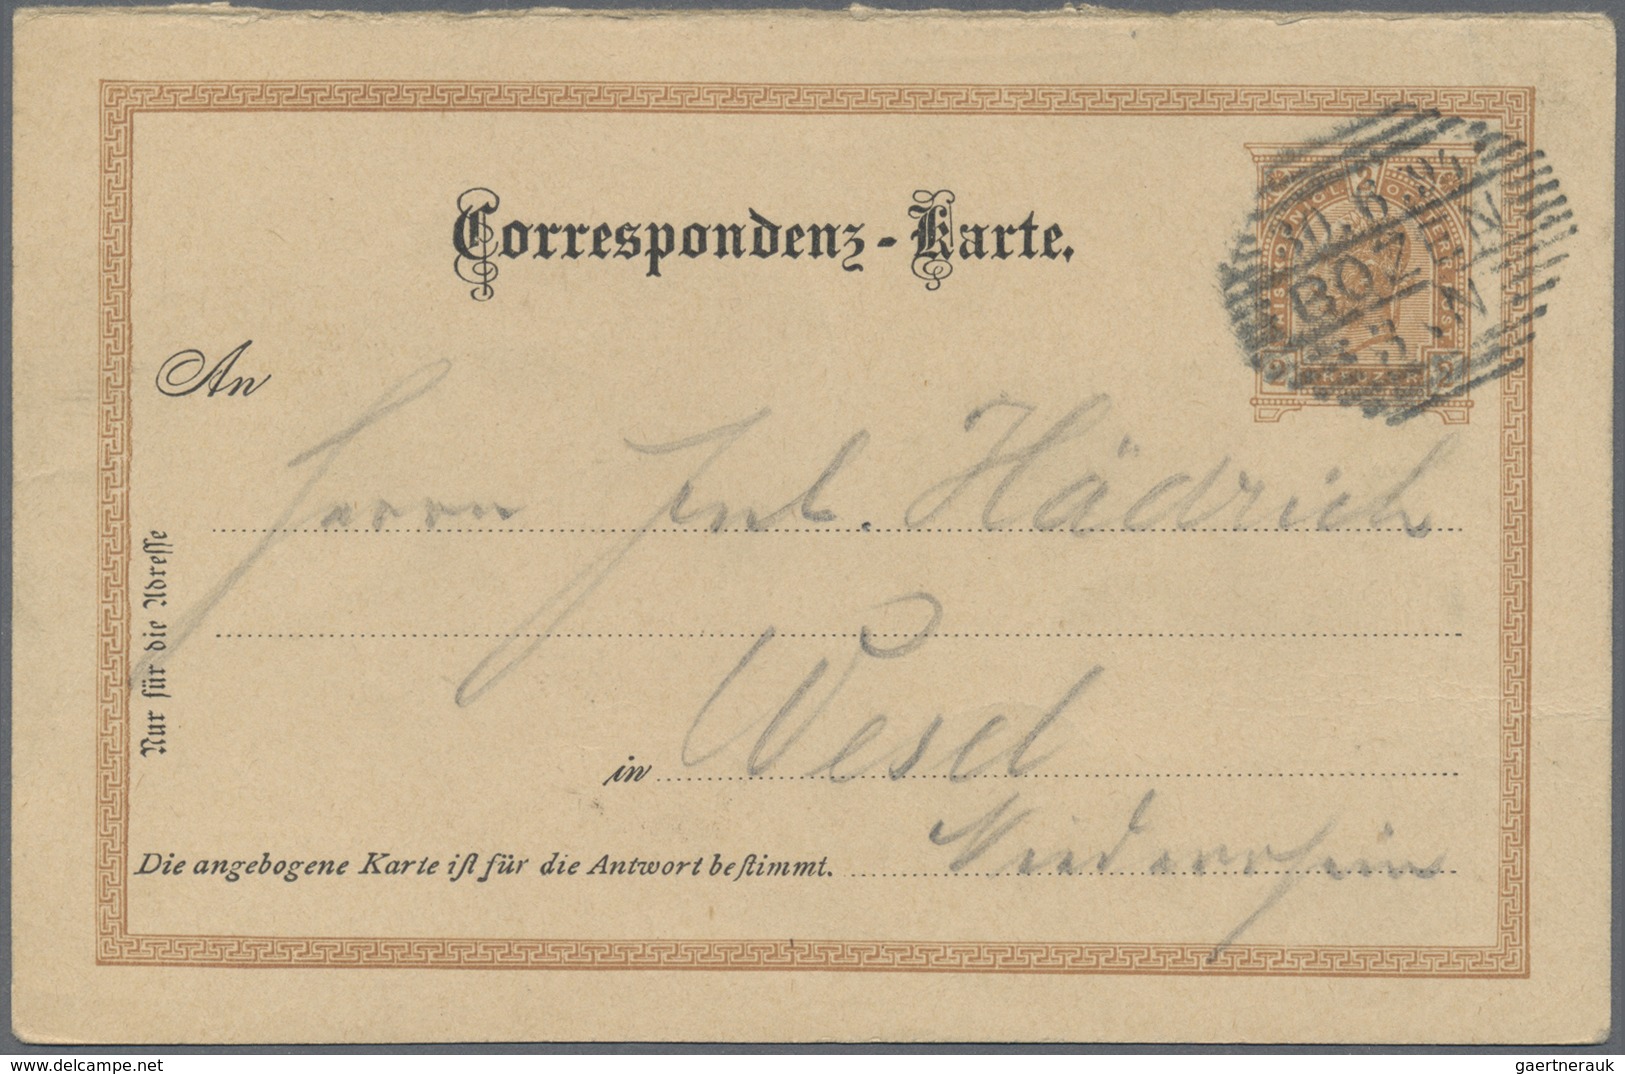 Correspondenz-Karte.
30.6.94
BOZEN
3·N
2 KREUZER 2
An
Herrn Jnl. Hädrich
in Wesel
Niederrhein
Nur für die Adresse
Die angebogene Karte ist für die Antwort bestimmt.
delcampe.net
gaertnerauk